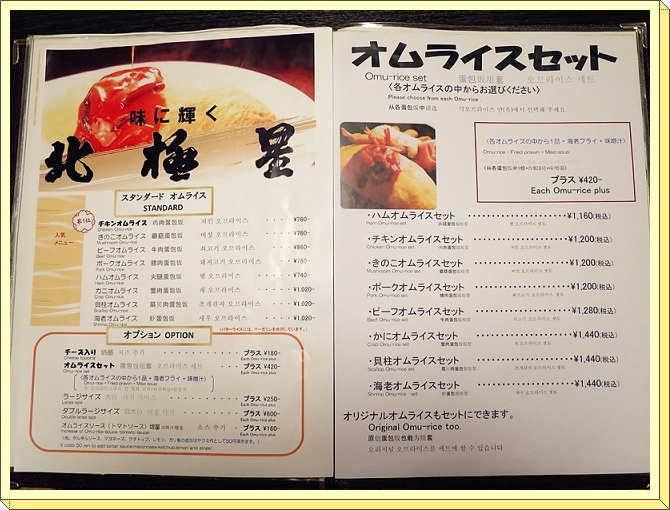 味に輝く
北極星
スタンダード オムライス
STANDARD
人気
メニュー
チキンオムライス 鸡肉蛋包饭 치킨 오므라이스 ¥780-
Chicken Omu-rice
きのこオムライス 蘑菇蛋包饭 버섯 오므라이스 ¥780-
Mushroom Omu-rice
ビーフオムライス 牛肉蛋包饭 쇠고기 오므라이스 ¥860-
Beef Omu-rice
ポークオムライス 猪肉蛋包饭 돼지고기 오므라이스 ¥780-
Pork Omu-rice
ハムオムライス 火腿蛋包饭 햄 오므라이스 ¥740-
Ham Omu-rice
カニオムライス 蟹肉蛋包饭 게 오므라이스 ¥1,020-
Crab Omu-rice
貝柱オムライス 扇贝肉蛋包饭 조개관자 오므라이스 ¥1,020-
Scallop Omu-rice
海老オムライス 虾蛋包饭 새우 오므라이스 ¥1,020-
Shrimp Omu-rice
(バターライスには、マーガリンを使用しています。)
オプション OPTION
チーズ入り 奶酪 치즈 추가 プラス ¥180-
Each Omu-rice plus
オムライスセット 蛋包饭组套 오므라이스 세트 プラス ¥420-
Omu-rice set Each Omu-rice plus
(各オムライスの中から1品・海老フライ・味噌汁)
Omu-rice・Fried prawn・Miso soup
ラージサイズ プラス ¥250-
Large size Each Omu-rice plus
ダブルラージサイズ プラス ¥600-
Double large size Each Omu-rice plus
オムライスソース(トマトソース)増量 소스 추가 プラス ¥160-
Increase of Omu-rice sauce (tomato sauce) Each Omu-rice plus
オムライスセット
Omu-rice set 蛋包饭组套 오므라이스 세트
〈各オムライスの中からお選びください〉
Please choose from each Omu-rice
从各蛋包饭中请选
〈各オムライスの中から1品・海老フライ・味噌汁〉
Omu-rice・Fried prawn・Miso soup
プラス ¥420-
Each Omu-rice plus
・ハムオムライスセット ¥1,160(税込)
Ham Omu-rice set 火腿蛋包饭组套
・チキンオムライスセット ¥1,200(税込)
Chicken Omu-rice set 鸡肉蛋包饭组套
・きのこオムライスセット ¥1,200(税込)
Mushroom Omu-rice set 蘑菇蛋包饭组套
・ポークオムライスセット ¥1,200(税込)
Pork Omu-rice set 猪肉蛋包饭组套
・ビーフオムライスセット ¥1,280(税込)
Beef Omu-rice set 牛肉蛋包饭组套
・かにオムライスセット ¥1,440(税込)
Crab Omu-rice set 蟹肉蛋包饭组套
・貝柱オムライスセット ¥1,440(税込)
Scallop Omu-rice set 扇贝肉蛋包饭组套
・海老オムライスセット ¥1,440(税込)
Shrimp Omu-rice set 虾蛋包饭组套
オリジナルオムライスもセットにできます。
Original Omu-rice too.
原创蛋包饭也能为组套
오리지널 오므라이스를 세트에 할 수 있습니다